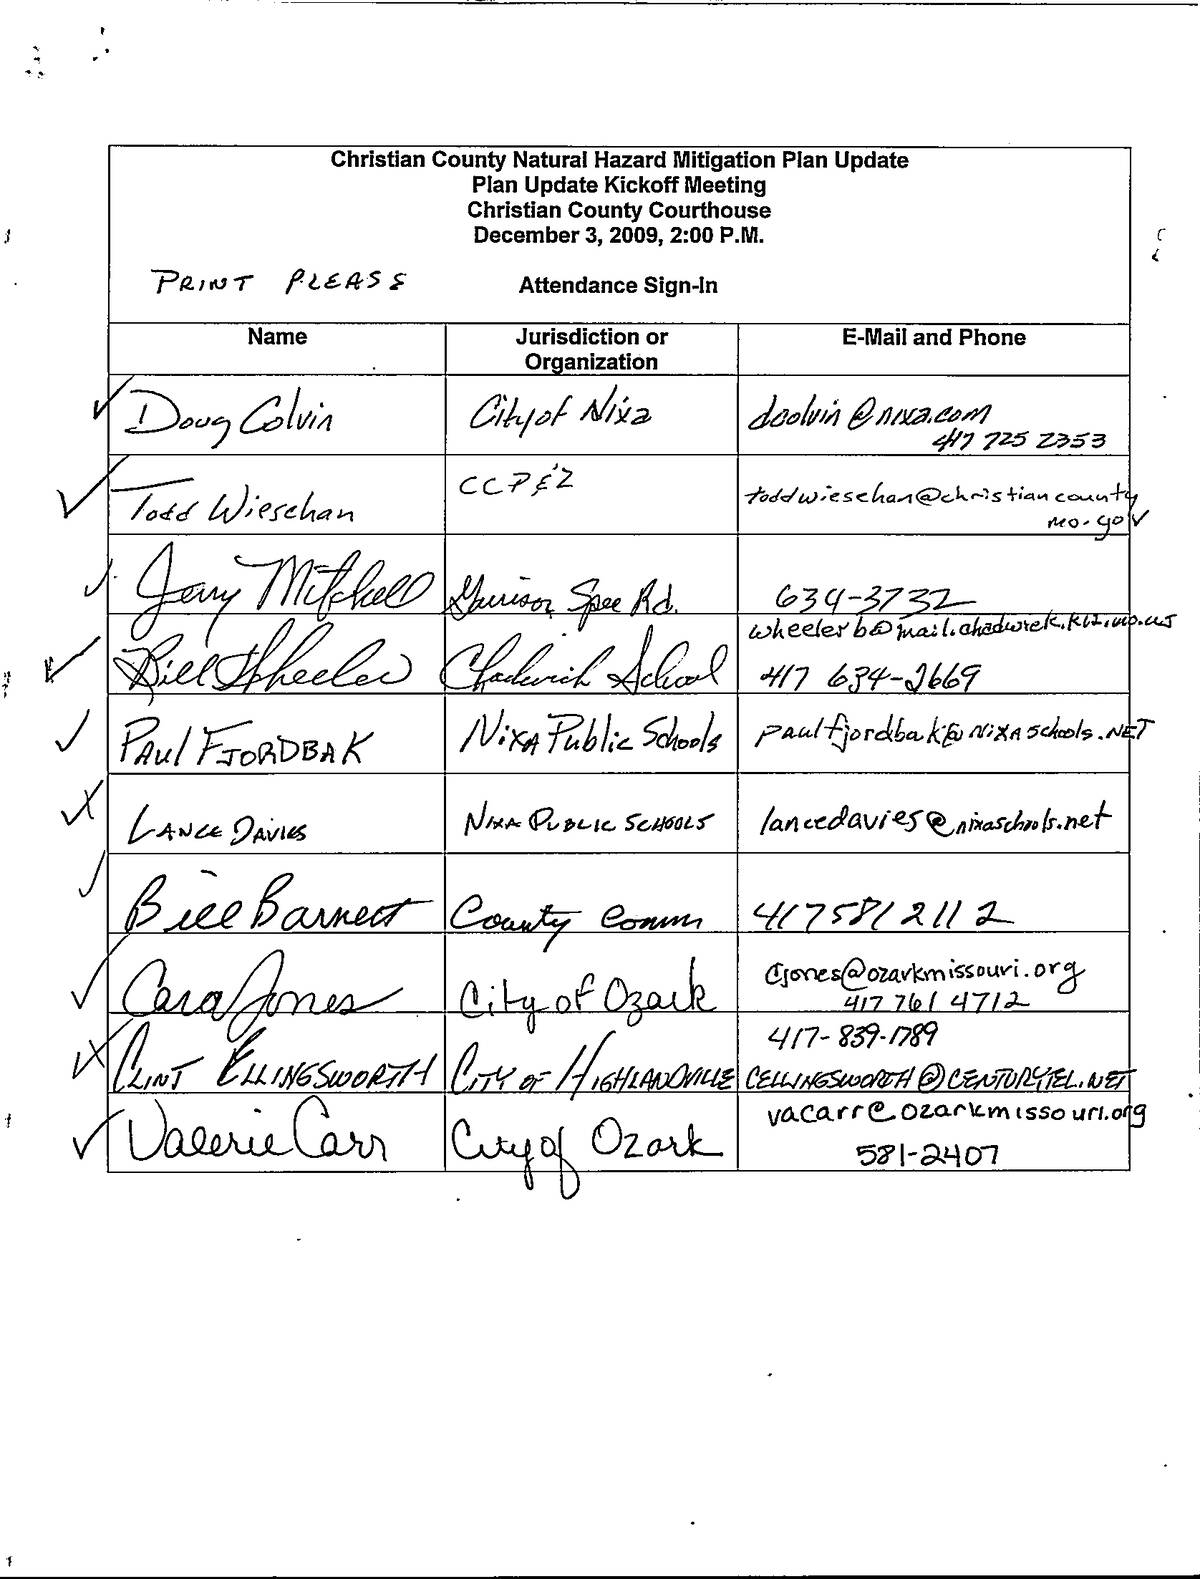 Christian County Natural Hazard Mitigation Plan Update
Plan Update Kickoff Meeting
Christian County Courthouse
December 3, 2009, 2:00 P.M.
PRINT PLEASE Attendance Sign-In
Name Jurisdiction or Organization E-Mail and Phone
Doug Colvin City of Nixa dcolvin@nixa.com
417 725 2353
Todd Wieschan CCP&Z toddwieschan@christiancounty
mo.gov
Jerry Mitchell Garrison Spec Rd. 634-3732
wheelerb@mail.chadwick.k12.mo.us
Bill Wheeler Chadwick School 417 634-2669
PAUL FJORDBAK NIXA Public Schools paulfjordbak@NIXASchools.NET
LANCE DAVIES NIXA PUBLIC SCHOOLS lancedavies@nixaschools.net
Bill Barnett County Comm 417 581 2112
cjones@ozarkmissouri.org
Cara Jones City of Ozark 417 761 4712
417-839-1789
CLINT ELLINGSWORTH CITY OF HIGHLANDVILLE CELLINGSWORTH@CENTURYTEL.NET
vacarr@ozarkmissouri.org
Valerie Carr City of Ozark 581-2407